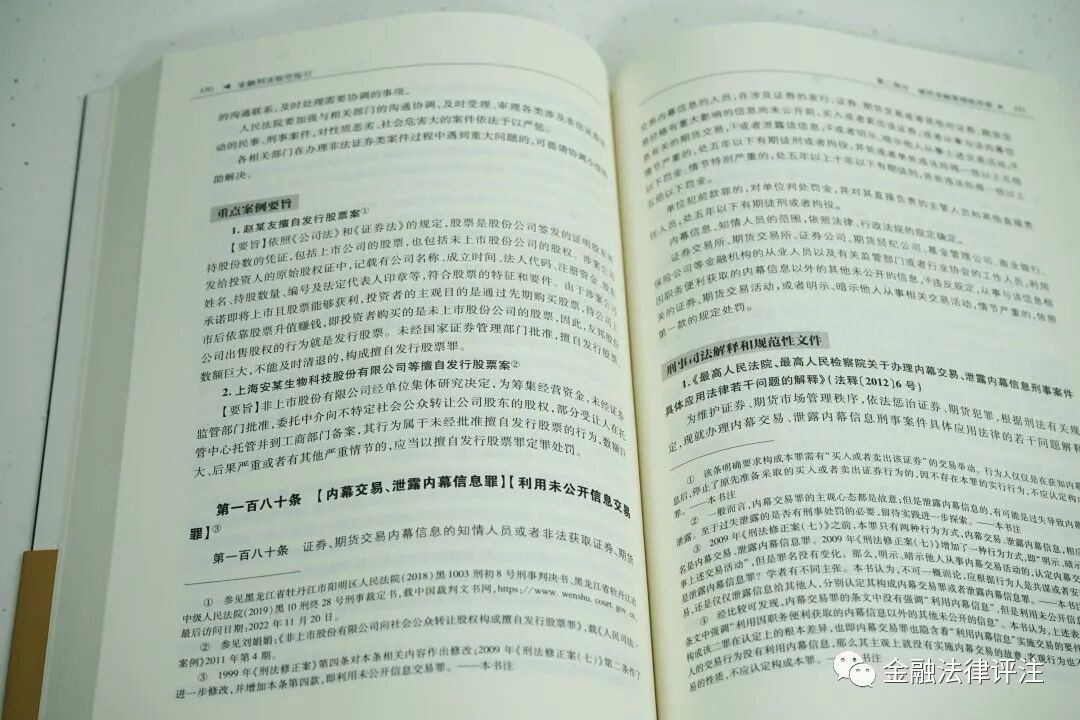 的沟通联系，及时处理需要协调的事项。
人民法院要加强与相关部门的沟通协调，及时受理、审理各类涉及非法证券活
动的民事、刑事案件，对性质恶劣、社会危害大的案件依法予以严惩。
各相关部门在办理非法证券类案件过程中遇到重大问题的，可提请协调小组协
助解决。
重点案例要旨
1. 赵某友擅自发行股票案①
【要旨】依照《公司法》和《证券法》的规定，股票是股份公司签发的证明股东所
持股份数的凭证，包括上市公司的股票，也包括未上市股份公司的股权。涉案公司
发给投资人的原始股权证中，记载有公司名称、成立时间、法人代码、注册资金、股东
姓名、持股数量、编号及法定代表人印章等，符合股票的特征和要件。由于涉案公司
承诺即将上市且股票能够获利，投资者的主观目的是通过先期购买股票，待公司上
市后依靠股票升值赚钱，即投资者购买的是未上市股份公司的股票，因此，友邦股份
公司出售股权的行为就是发行股票。未经国家证券管理部门批准，擅自发行股票，
数额巨大，不能及时清退的，构成擅自发行股票罪。
2. 上海安某生物科技股份有限公司等擅自发行股票案②
【要旨】非上市股份有限公司经单位集体研究决定，为筹集经营资金，未经证券
监管部门批准，委托中介向不特定社会公众转让公司股东的股权，部分受让人在托
管中心托管并到工商部门备案，其行为属于未经批准擅自发行股票的行为，数额巨
大、后果严重或者有其他严重情节的，应当以擅自发行股票罪定罪处罚。
第一百八十条 【内幕交易、泄露内幕信息罪】【利用未公开信息交易
罪】③
第一百八十条 证券、期货交易内幕信息的知情人员或者非法获取证券、期货
① 参见黑龙江省牡丹江市阳明区人民法院（2018）黑1003刑初8号刑事判决书、黑龙江省牡丹江市
中级人民法院（2019）黑10刑终28号刑事裁定书，载中国裁判文书网，https://www.wenshu.court.gov.cn，
最后访问日期：2022年11月20日。
② 参见刘娟娟：《非上市股份有限公司向社会公众转让股权构成擅自发行股票罪》，载《人民司法·
案例》2011年第4期。
③ 1999年《刑法修正案》第四条对本条相关内容作出修改；2009年《刑法修正案（七）》第二条作了
进一步修改，并增加本条第四款，即利用未公开信息交易罪。——本书注
交易内幕信息的人员，在涉及证券的发行，证券、期货交易或者其他对证券、期货交
易价格有重大影响的信息尚未公开前，买入或者卖出该证券，或者从事与该内幕信
息有关的期货交易，①或者泄露该信息，②或者明示、暗示他人从事上述交易活动，③
情节严重的，处五年以下有期徒刑或者拘役，并处或者单处违法所得一倍以上五倍
以下罚金；情节特别严重的，处五年以上十年以下有期徒刑，并处违法所得一倍以上
五倍以下罚金。
单位犯前款罪的，对单位判处罚金，并对其直接负责的主管人员和其他直接责
任人员，处五年以下有期徒刑或者拘役。
内幕信息、知情人员的范围，依照法律、行政法规的规定确定。
证券交易所、期货交易所、证券公司、期货经纪公司、基金管理公司、商业银行、
保险公司等金融机构的从业人员以及有关监管部门或者行业协会的工作人员，利用
因职务便利获取的内幕信息以外的其他未公开的信息，④违反规定，从事与该信息相
关的证券、期货交易活动，或者明示、暗示他人从事相关交易活动，情节严重的，依照
第一款的规定处罚。
刑事司法解释和规范性文件
1.《最高人民法院、最高人民检察院关于办理内幕交易、泄露内幕信息刑事案件
具体应用法律若干问题的解释》（法释〔2012〕6号）
为维护证券、期货市场管理秩序，依法惩治证券、期货犯罪，根据刑法有关规
定，现就办理内幕交易、泄露内幕信息刑事案件具体应用法律的若干问题解释
① 该条明确要求构成本罪需有“买入或者卖出该证券”的交易举动。行为人仅仅是在获知内幕
息后，停止了原先准备采取的买入或者卖出证券行为的，因不存在本罪的实行行为，不应认定构成
罪。——本书注
② 一般而言，内幕交易罪的主观心态都是故意；但是泄露内幕信息的，有可能是过失导致内幕
泄露。至于过失泄露的是否有刑事处罚的必要，留待实践进一步探索。——本书注
③ 2009年《刑法修正案（七）》之前，本罪只有两种行为方式，内幕交易、泄露内幕信息，相
名是内幕交易、泄露内幕信息罪。2009年《刑法修正案（七）》增加了一种行为方式，即“明示、暗示
事上述交易活动”，但是罪名没有变化。那么，明示、暗示他人从事内幕交易活动的，认定内幕交
是泄露内幕信息罪？学者有不同主张。本书认为，不可一概而论，应根据行为人是共谋或者安
易，还是仅仅泄露信息给其他人，分别认定其构成内幕交易罪或者泄露内幕信息罪。——本书
④ 经比较可发现，内幕交易罪的条文中没有强调“利用内幕信息”，但是利用未公开信息
条文中强调“利用因职务便利获取的内幕信息以外的其他未公开的信息”。本书认为，上述表
构成该二罪在认定上的根本差异，也即内幕交易罪也隐含着“利用内幕信息”实施交易的要件
人的交易行为没有利用内幕信息，那么其主观上就没有实施内幕交易的故意，客观行为也
易的性质，不应认定构成本罪。——本书注
金融法律评注